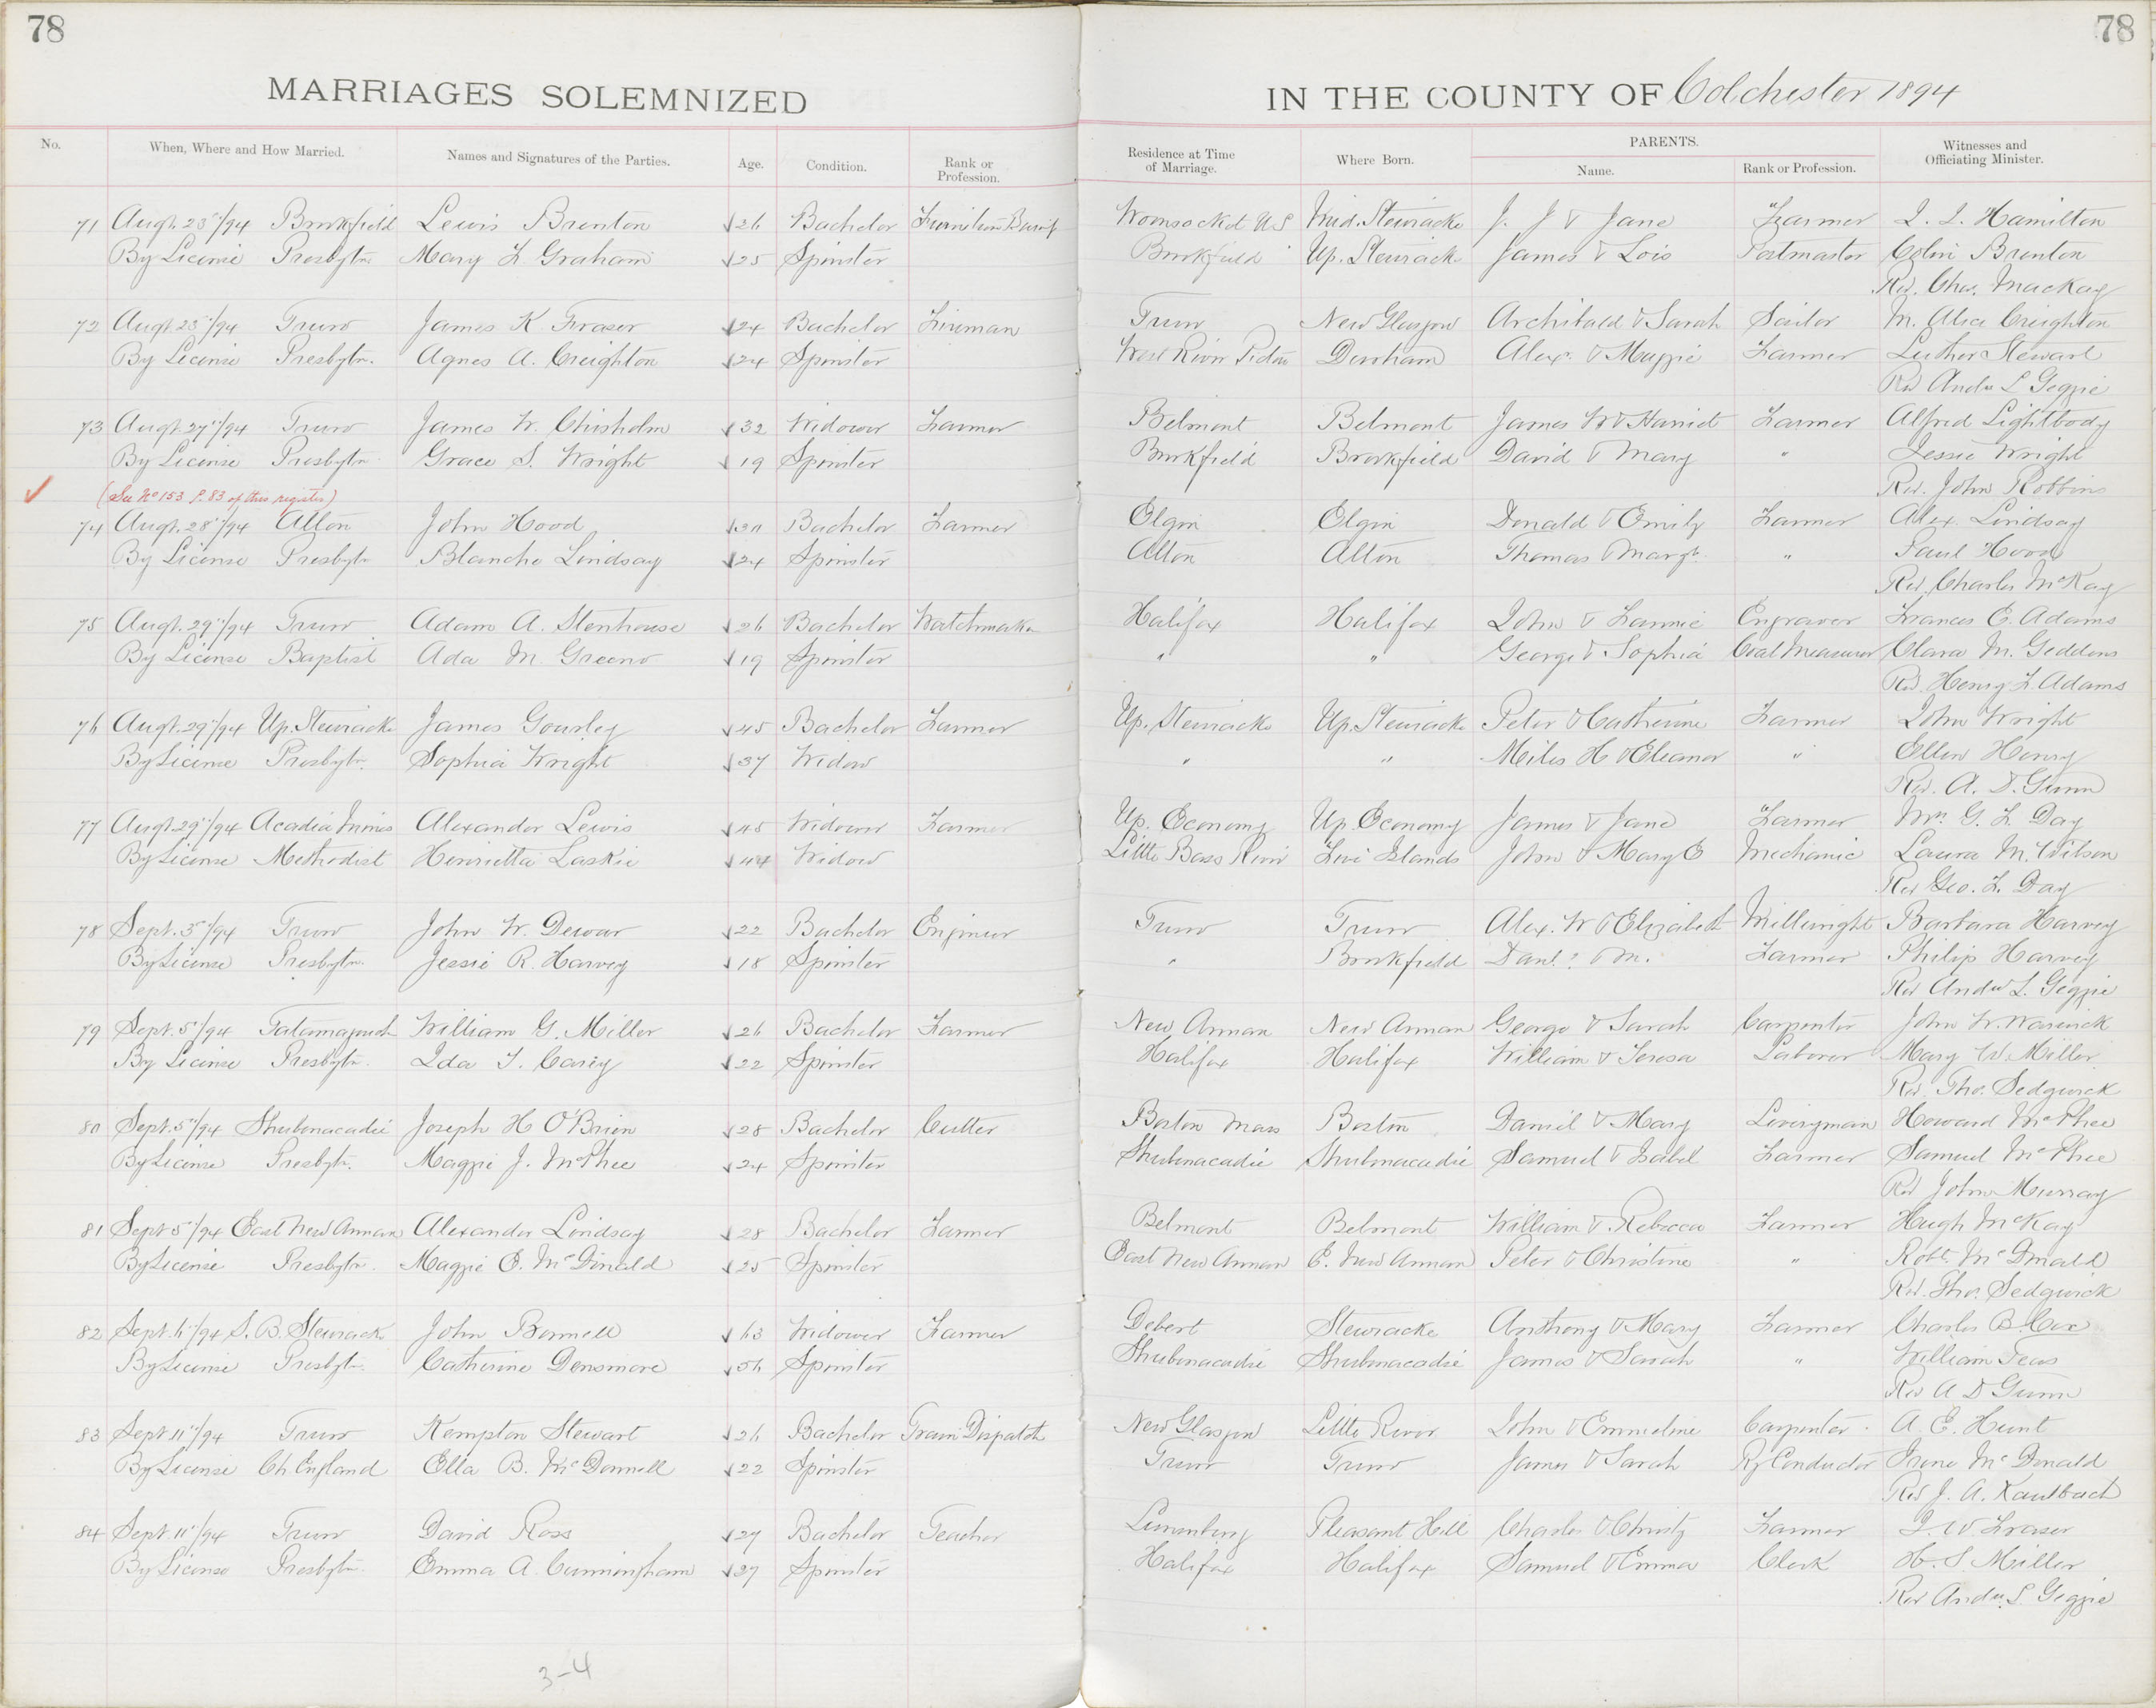 78
78
MARRIAGES SOLEMNIZED
IN THE COUNTY OF Colchester 1894
No. When, Where and How Married. Names and Signatures of the Parties. Age. Condition. Rank or Profession. Residence at Time of Marriage. Where Born. PARENTS. Name. Rank or Profession. Witnesses and Officiating Minister.
71 Augt. 23"/94 Brookfield Lewis Brenton 26 Bachelor Furniture Woonsocket US Mid. Stewiacke J. J & Jane Farmer I. I. Hamilton
By License Presbytn. Mary F. Graham 25 Spinster Brookfield Up. Stewiacke James & Lois Postmaster Colin Brenton
Rev. Chas. Mackay
72 Augt. 23"/94 Truro James K. Fraser 24 Bachelor Fireman Truro New Glasgow Archibald & Sarah Sailor M. Alice Creighton
By License Presbytn. Agnes A. Creighton 24 Spinster West River Pictou Durham Alex. & Maggie Farmer Luther Stewart
Rev Andw L Geggie
73 Augt. 27"/94 Truro James W. Chisholm 32 Widower Farmer Belmont Belmont James W & Harriet Farmer Alfred Lightbody
By License Presbytn Grace S. Wright 19 Spinster Brookfield Brookfield David & Mary " Jessie Wright
Rev. John Robbins
✓ (See No 153 P. 83 of this register)
74 Augt. 28"/94 Alton John Hood 30 Bachelor Farmer Elgin Elgin Donald & Emily Farmer Alex. Lindsay
By License Presbytn Blanche Lindsay 24 Spinster Alton Alton Thomas & Margt. " Paul Hood
Rev. Charles McKay
75 Augt. 29"/94 Truro Adam A. Stenhouse 26 Bachelor Watchmaker Halifax Halifax John & Fannie Engraver Frances E. Adams
By License Baptist Ada M Greeno 19 Spinster " " George & Sophia Coal Measurer Clara M. Geddens
Rev. Henry F. Adams
76 Augt. 29"/94 Up. Stewiacke James Gourley 45 Bachelor Farmer Up. Stewiacke Up. Stewiacke Peter & Catherine Farmer John Wright
By License Presbytn. Sophia Wright 37 Widow " " Miles H & Eleanor " Ellen Henry
Rev. A. D. Gunn
77 Augt. 29"/94 Acadia Mines Alexander Lewis 45 Widower Farmer Up. Economy Up. Economy James & Jane Farmer Mrs G. F. Day
By License Methodist Henrietta Laskie 44 Widow Little Bass River Five Islands John & Mary E Mechanic Laura M. Wilson
Rev Geo. F. Day
78 Sept. 3"/94 Truro John W. Dewar 22 Bachelor Engineer Truro Truro Alex. W & Elizabeth Millwright Barbara Harvey
By License Presbytn. Jessie R. Harvey 18 Spinster " Brookfield Danl. ? & M. Farmer Philip Harvey
Rev Andw L. Geggie
79 Sept. 5"/94 Tatamagouch William G. Miller 26 Bachelor Farmer New Annan New Annan George & Sarah Carpenter John W. Warwick
By License Presbytn. Ida T. Carey 22 Spinster Halifax Halifax William & Teresa Laborer Mary W. Miller
Rev. Thos. Sedgwick
80 Sept. 5"/94 Shubenacadie Joseph H O'Brien 28 Bachelor Cutter Boston Mass Boston Daniel & Mary Liveryman Howard McPhee
By License Presbytn. Maggie J. McPhee 24 Spinster Shubenacadie Shubenacadie Samuel & Isabel Farmer Samuel McPhee
Rev John Murray
81 Sept 5"/94 East New Annan Alexander Lindsay 28 Bachelor Farmer Belmont Belmont William & Rebecca Farmer Hugh McKay
By License Presbytn. Maggie E. McDonald 25 Spinster East New Annan E. New Annan Peter & Christine " Robt. McDonald
Rev. Thos. Sedgwick
82 Sept. 6"/94 S. B. Stewiacke John Bonnell 63 Widower Farmer Debert Stewiacke Anthony & Mary Farmer Charles B. Cox
By License Presbytn. Catherine Densmore 56 Spinster Shubenacadie Shubenacadie James & Sarah " William Teas
Rev A D Gunn
83 Sept 11"/94 Truro Kempton Stewart 26 Bachelor Train Dispatch New Glasgow Little River John & Emmeline Carpenter. A. E. Hunt
By License Ch. England Ella B. McDonnell 22 Spinster Truro Truro James & Sarah Ry Conductor Irene McDonald
Rev J. A. Kaulbach
84 Sept. 11"/94 Truro David Ross 27 Bachelor Teacher Lunenburg Pleasant Hill Charles & Christy Farmer I. W Fraser
By License Presbytn. Emma A. Cunningham 27 Spinster Halifax Halifax Samuel & Emma Clerk H. S Miller
Rev Andw. L Geggie
3-4